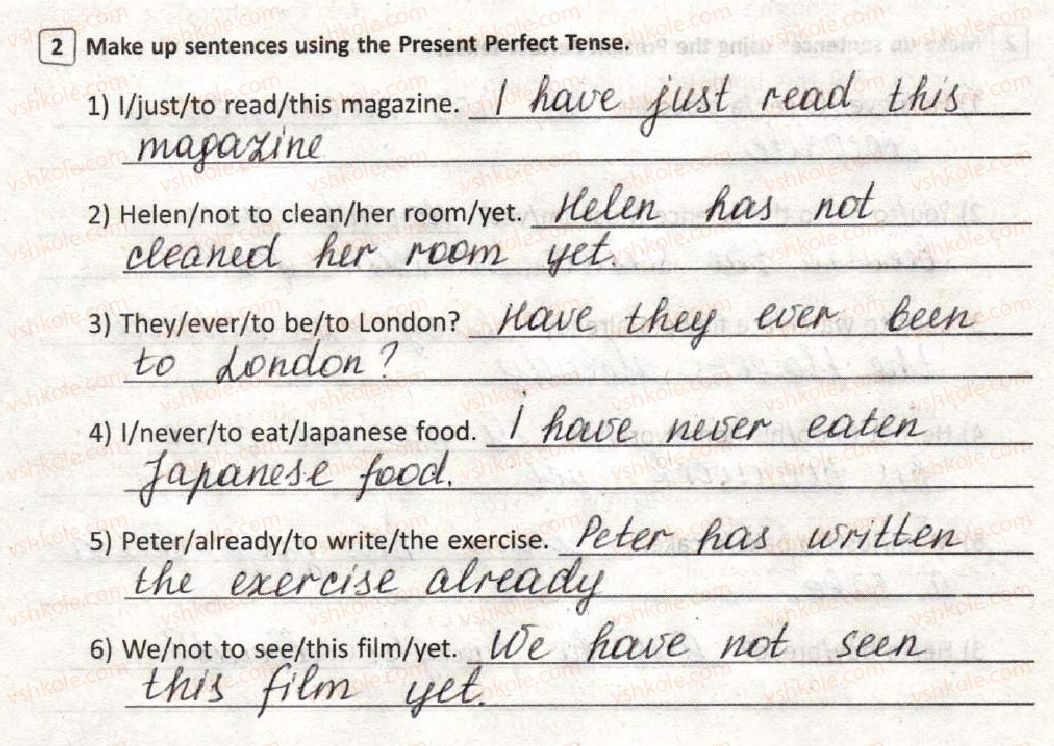 2 Make up sentences using the Present Perfect Tense.
1) I/just/to read/this magazine. I have just read this
magazine
2) Helen/not to clean/her room/yet. Helen has not
cleaned her room yet.
3) They/ever/to be/to London? Have they ever been
to London?
4) I/never/to eat/Japanese food. I have never eaten
Japanese food.
5) Peter/already/to write/the exercise. Peter has written
the exercise already
6) We/not to see/this film/yet. We have not seen
this film yet.